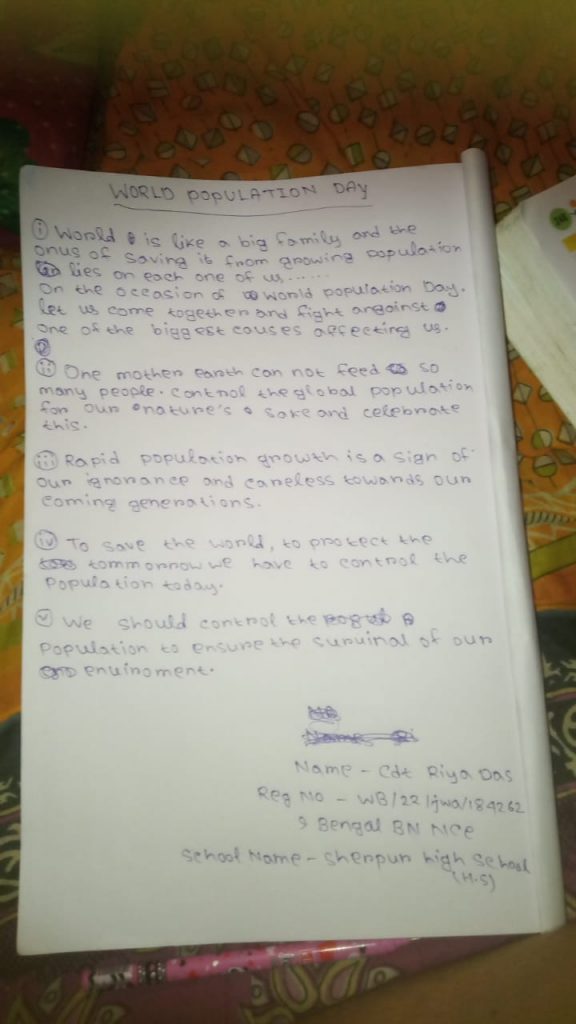 WORLD POPULATION DAY
(i) World is like a big family and the
onus of saving it from growing population
lies on each one of us......
On the occasion of world population Day.
let us come together and fight angainst
one of the biggest causes affecting us.
(ii) One mother earth can not feed so
many people. control the global population
for our nature's sake and celebrate
this.
(iii) Rapid population growth is a sign of
our ignorance and careless towards our
coming generations.
(iv) To save the world, to protect the
tommorrow we have to control the
population today.
(v) We should control the
population to ensure the survival of our
enviroment.
Name - Cdt Riya Das
Reg No - WB/22/jwa/184262
9 Bengal BN NCC
School Name - Sherpur high School
(H.S)